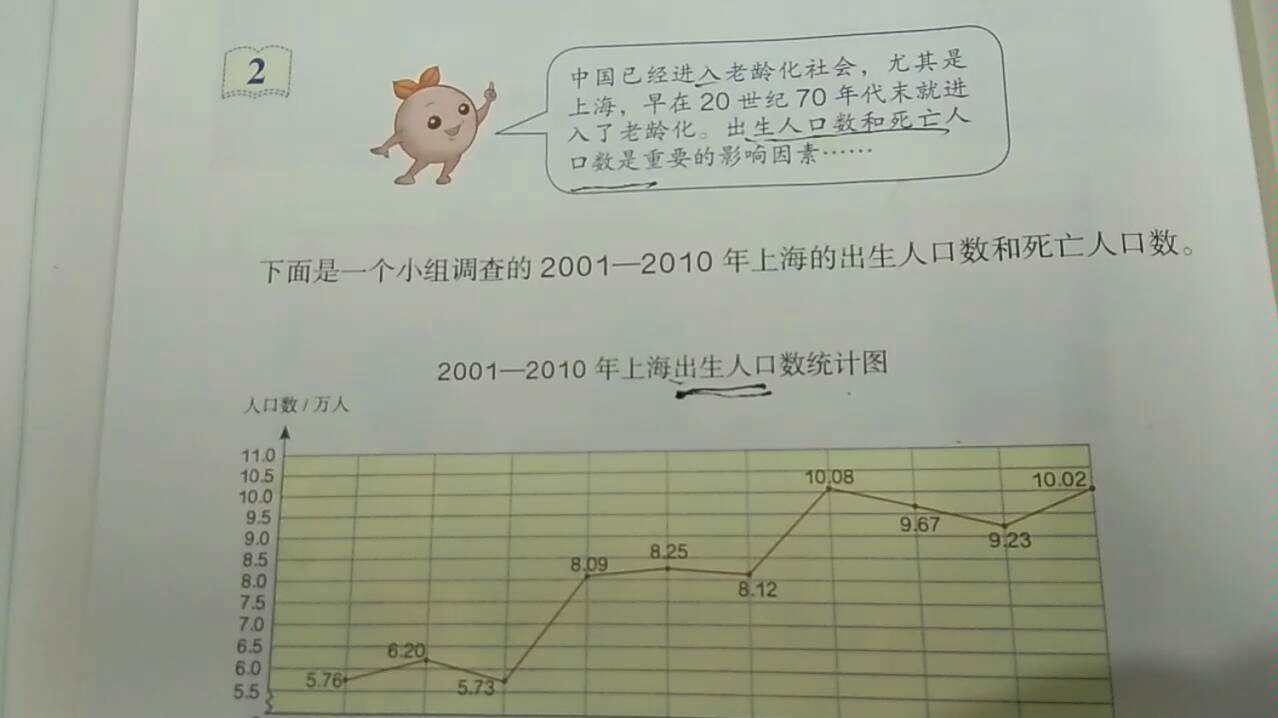 2
中国已经进入老龄化社会，尤其是
上海，早在20世纪70年代末就进
入了老龄化。出生人口数和死亡人
口数是重要的影响因素……
下面是一个小组调查的2001—2010年上海的出生人口数和死亡人口数。
2001—2010年上海出生人口数统计图
人口数/万人
11.0
10.5
10.0
9.5
9.0
8.5
8.0
7.5
7.0
6.5
6.0
5.5
5.76
6.20
5.73
8.09
8.25
8.12
10.08
9.67
9.23
10.02